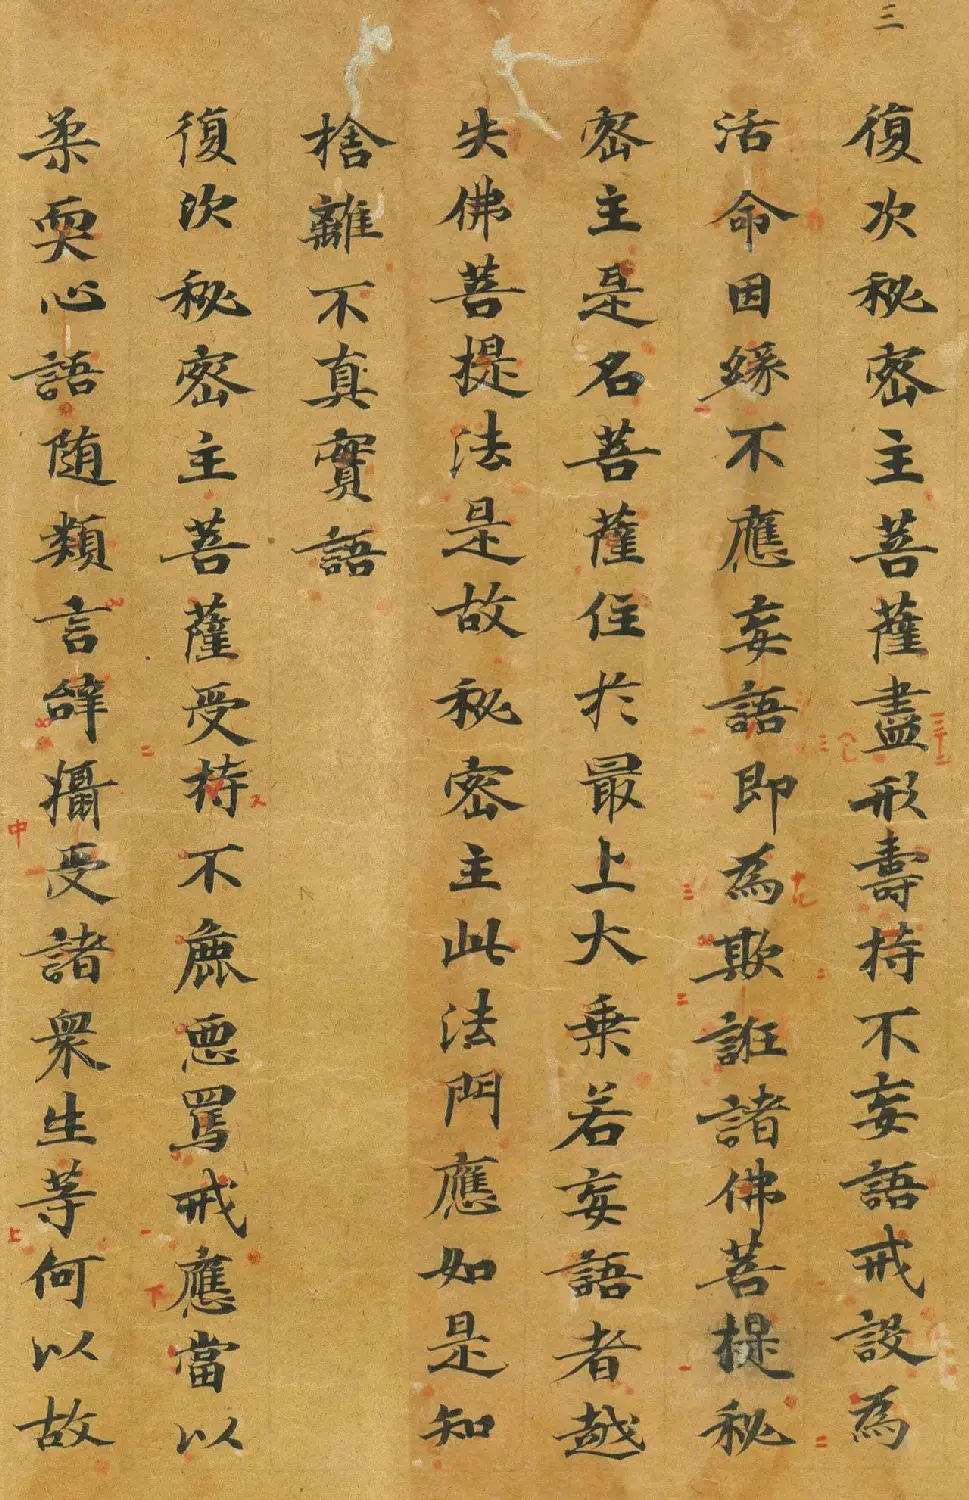 三
復次秘密主菩薩盡形壽持不妄語戒設為
活命因緣不應妄語即為欺誑諸佛菩提秘
密主是名菩薩住於最上大乗若妄語者越
失佛菩提法是故秘密主此法門應如是知
捨離不真實語
復次秘密主菩薩受持不麁悪罵戒應當以
柔耎心語随類言辝攝受諸衆生等何以故